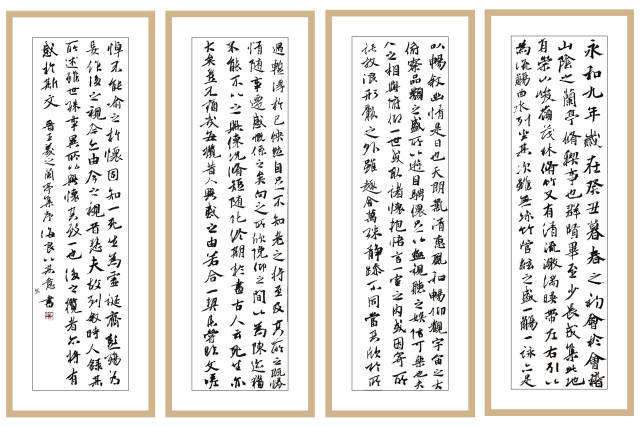 永和九年歲在癸丑暮春之初會於會稽
山陰之蘭亭脩禊事也群賢畢至少長咸集此地
有崇山峻嶺茂林脩竹又有清流激湍暎帶左右引以
為流觴曲水列坐其次雖無絲竹管絃之盛一觴一詠亦足
以暢敘幽情是日也天朗氣清惠風和暢仰觀宇宙之大
俯察品類之盛所以遊目騁懷足以極視聽之娛信可樂也夫
人之相與俯仰一世或取諸懷抱悟言一室之內或因寄所
託放浪形骸之外雖趣舍萬殊靜躁不同當其欣於所
遇蹔得於己怏然自足不知老之將至及其所之既惓
情隨事遷感慨係之矣向之所欣俛仰之間以為陳迹猶
不能不以之興懷況脩短隨化終期於盡古人云死生亦
大矣豈不痛哉每攬昔人興感之由若合一契未嘗臨文嗟
悼不能喻之於懷固知一死生為虛誕齊彭殤為
妄作後之視今亦由今之視昔悲夫故列敘時人錄其
所述雖世殊事異所以興懷其致一也後之攬者亦將有
感於斯文 晉王羲之蘭亭集序 書